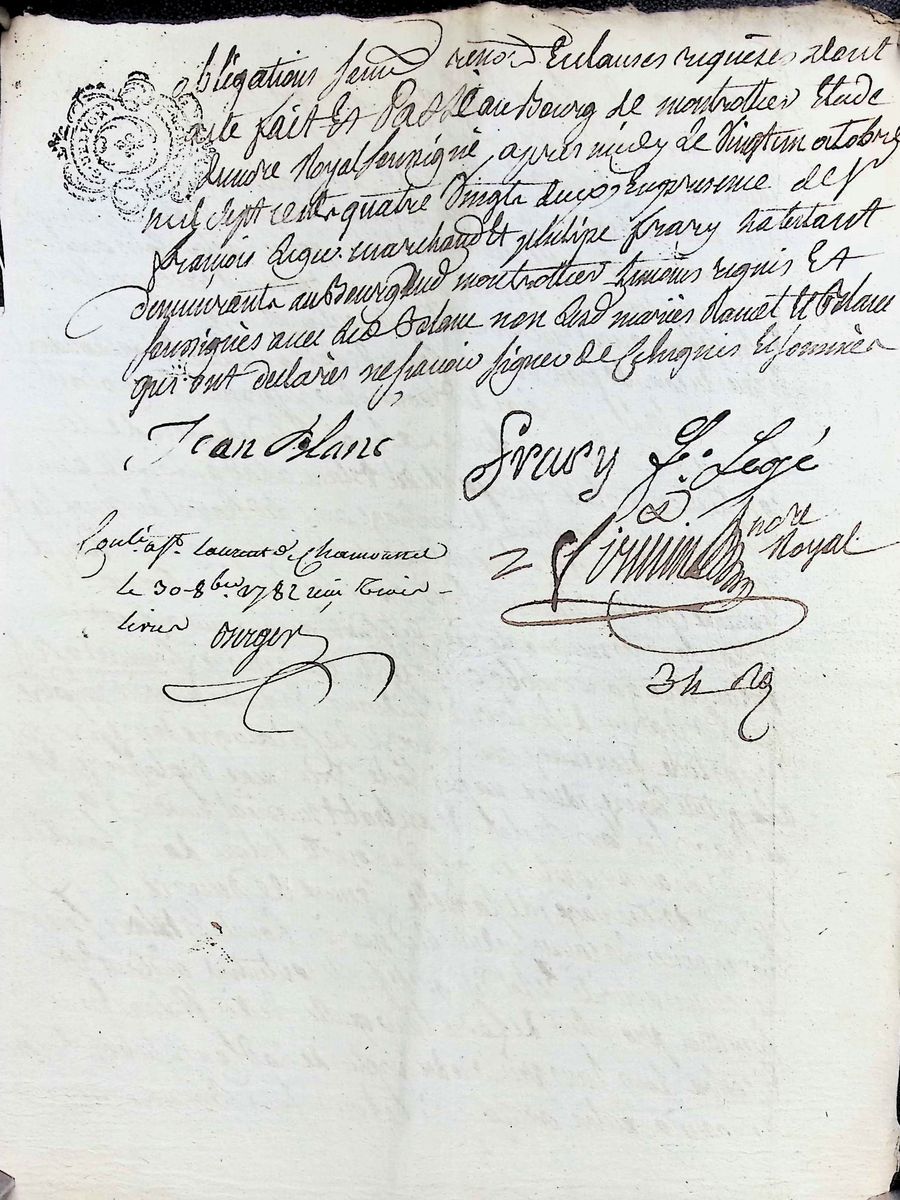 obligations soumō renonō Et clauses requises dont
acte fait Et Passé au Bourg de montrottier Etude
du nore Royal soussigné apres midy Le vingt un octobre
mil sept cent quatre vingts deux En presence de sr
françois Legé marchand Et philipe frary habitant
demeurants au Bourg dud montrottier temoins requis Et
soussignés avec led Blanc non lesd mariés Et Blanc
qui ont declarés ne savoir signer de Ce Enquis Et sommés
Jean Blanc
Frary f. Legé
nore Royal
Conlé à St Laurent de Chamousset
le 30 8bre 1782 reçu trois
livres